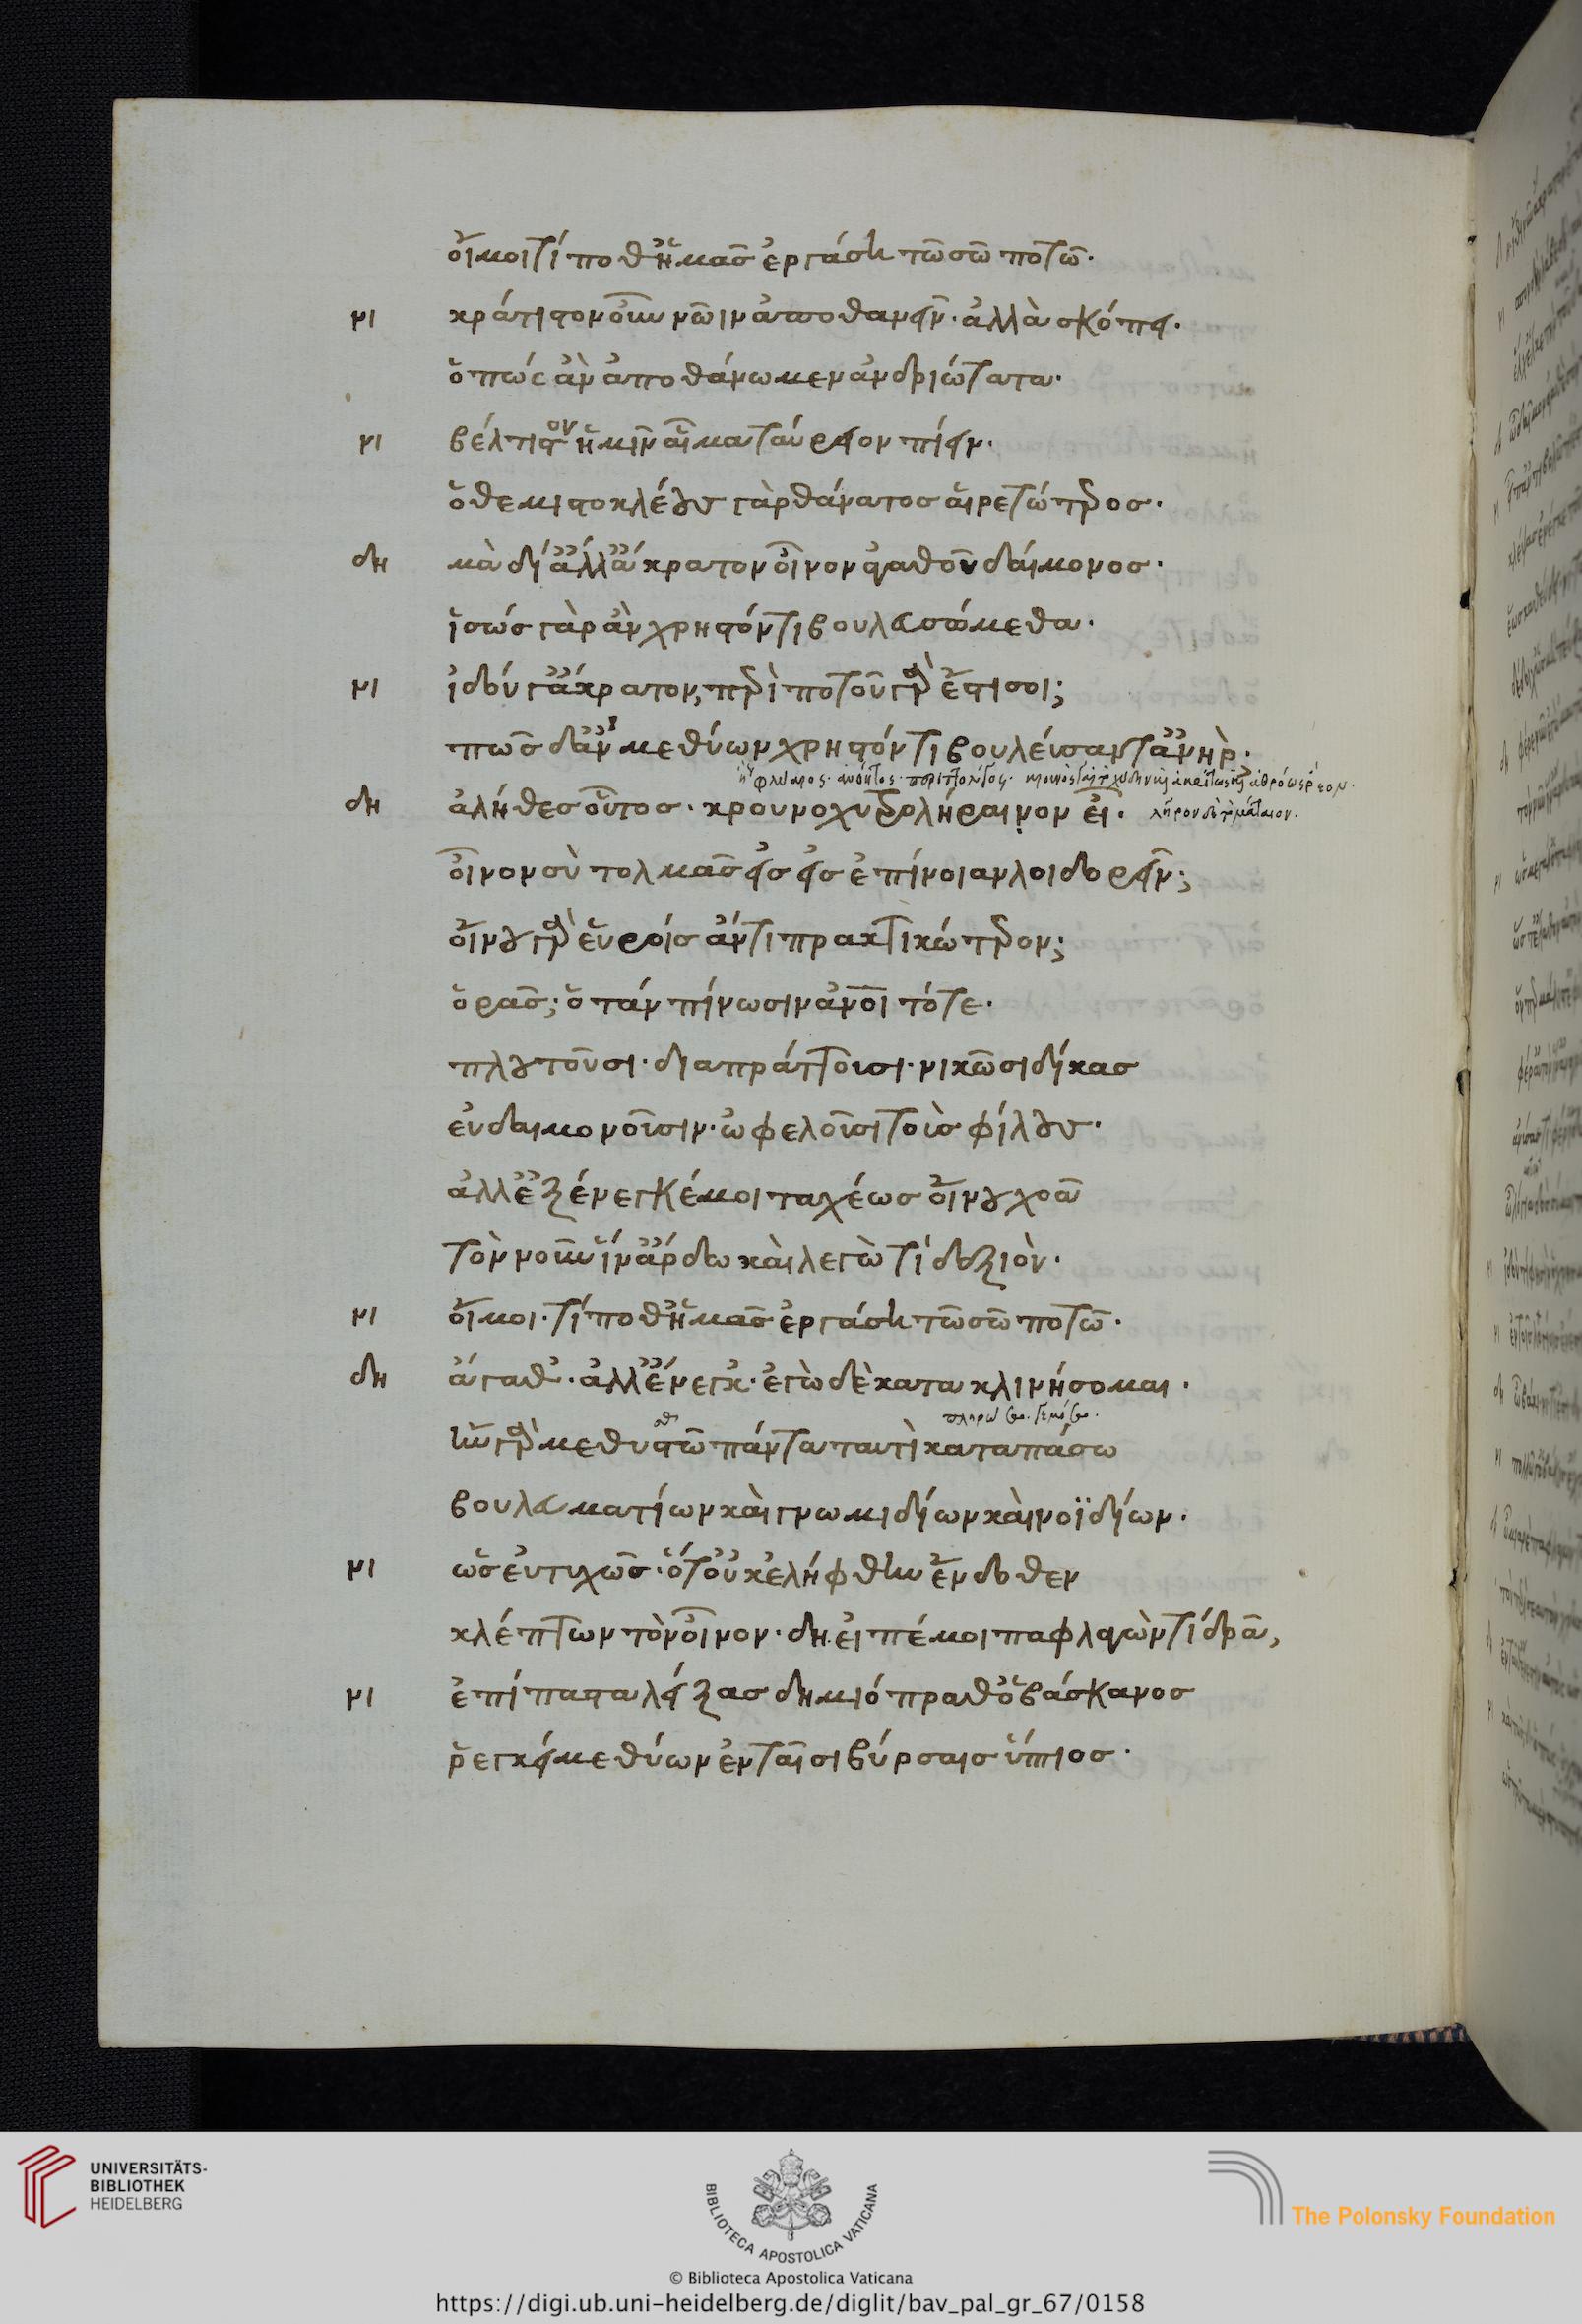 οἴμοι τί ποθ' ἡμᾶσ ἐργάση τῶ σῶ ποτῶ·
νι κράτιστον οὖν νῶιν ἀποθανεῖν· ἀλλὰ σκόπει·
ὅπώς ἂν ἀποθάνωμεν ἀνδριώτατα·
νι βέλτιστον ἡμῖν αἷμα ταύρειον πίειν·
ὁ θεμιστοκλέους γὰρ θάνατοσ αἱρετώτεροσ·
δη μὰ δί ἀλλ' ἄκρατον οἶνον ἀγαθοῦ δαίμονοσ·
ἴσώσ γὰρ ἂν χρηστόν τι βουλευσώμεθα·
νι ἰδού γ' ἄκρατον, περὶ ποτοῦ γὰρ ἔστι σοι;
πῶσ δ' ἂν μεθύων χρηστόν τι βουλεύσαιτ' ἀνὴρ·
δη ἀλήθεσ οὗτοσ· κρουνοχυτρολήραινον εἶ·
λῆρον δὲ τὸ μάταιον·
οἶνον σὺ τολμᾶσ εἰσ ἐπίνοιαν λοιδορεῖν;
οἴνου γὰρ εὕροισ ἄν τι πρακτικώτερον;
ὁρᾶσ; ὅταν πίνωσιν ἄνοι τότε·
πλουτοῦσι· διαπράττουσι· νικῶσι δίκασ
εὐδαιμονοῦσιν· ὠφελοῦσι τοὺσ φίλους·
ἀλλ' ἐξένεγκέ μοι ταχέωσ οἴνου χοᾶ
τὸν νοῦν ἵν' ἄρδω καὶ λεγὼ τί δεξιὸν·
νι οἴμοι· τί ποθ' ἡμᾶσ ἐργάση τῶ σῶ ποτῶ·
δη ἀγαθ'· ἀλλ' ἔνεγκ'· ἐγὼ δὲ κατακλινήσομαι·
ἢν γὰρ μεθυσθῶ πάντα ταυτὶ καταπάσω
βουλευματίων καὶ γνωμιδίων καὶ νοϊδίων·
νι ὡσ εὐτυχῶσ· ὅτ' οὐκ ἐλήφθην ἔνδοθεν
κλέπτων τὸν οἶνον· δη. εἰπέ μοι παφλαγὼν τί δρᾶ,
νι ἐπίπαστα λείξασ δημιόπραθ' ὁ βάσκανοσ
ῥέγκει μεθύων ἐν ταῖσι βύρσαισ ὕπτιοσ·
UNIVERSITÄTS-
BIBLIOTHEK
HEIDELBERG
BIBLIOTECA APOSTOLICA VATICANA
The Polonsky Foundation
© Biblioteca Apostolica Vaticana
https://digi.ub.uni-heidelberg.de/diglit/bav_pal_gr_67/0158